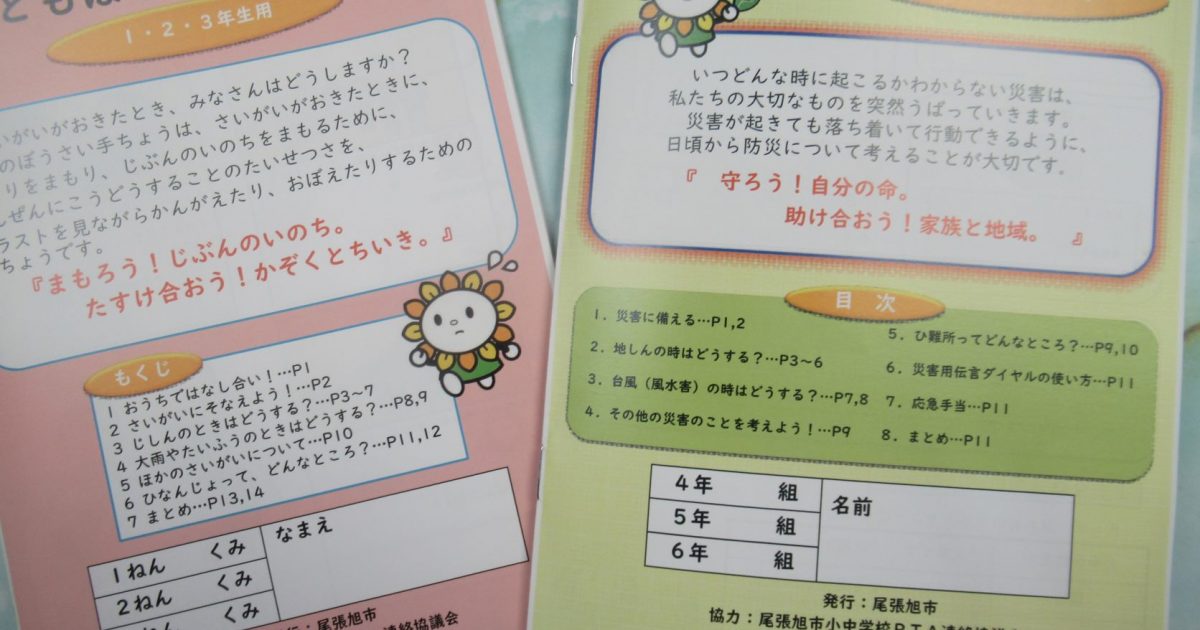 1・2・3年生用
がいがおきたとき、みなさんはどうしますか?
のぼうさい手ちょうは、さいがいがおきたときに、
りをまもり、じぶんのいのちをまもるために、
ぜんにこうどうすることのたいせつさを、
ラストを見ながらかんがえたり、おぼえたりするための
ちょうです。
『まもろう!じぶんのいのち。
たすけ合おう!かぞくとちいき。』
もくじ
1 おうちではなし合い!…P1
2 さいがいにそなえよう!…P2
3 じしんのときはどうする?…P3~7
4 大雨やたいふうのときはどうする?…P8,9
5 ほかのさいがいについて…P10
6 ひなんじょって、どんなところ?…P11,12
7 まとめ…P13,14
1ねん くみ
2ねん くみ
ねん くみ
なまえ
行:尾張旭市
連絡協議会
いつどんな時に起こるかわからない災害は、
私たちの大切なものを突然うばっていきます。
災害が起きても落ち着いて行動できるように、
日頃から防災について考えることが大切です。
『 守ろう!自分の命。
助け合おう!家族と地域。 』
目 次
1.災害に備える…P1,2
2.地しんの時はどうする?…P3~6
3.台風(風水害)の時はどうする?…P7,8
4.その他の災害のことを考えよう!…P9
5.ひ難所ってどんなところ?…P9,10
6.災害用伝言ダイヤルの使い方…P11
7.応急手当…P11
8.まとめ…P11
4年 組
5年 組
6年 組
名前
発行:尾張旭市
協力:尾張旭市小中学校PTA連絡協議